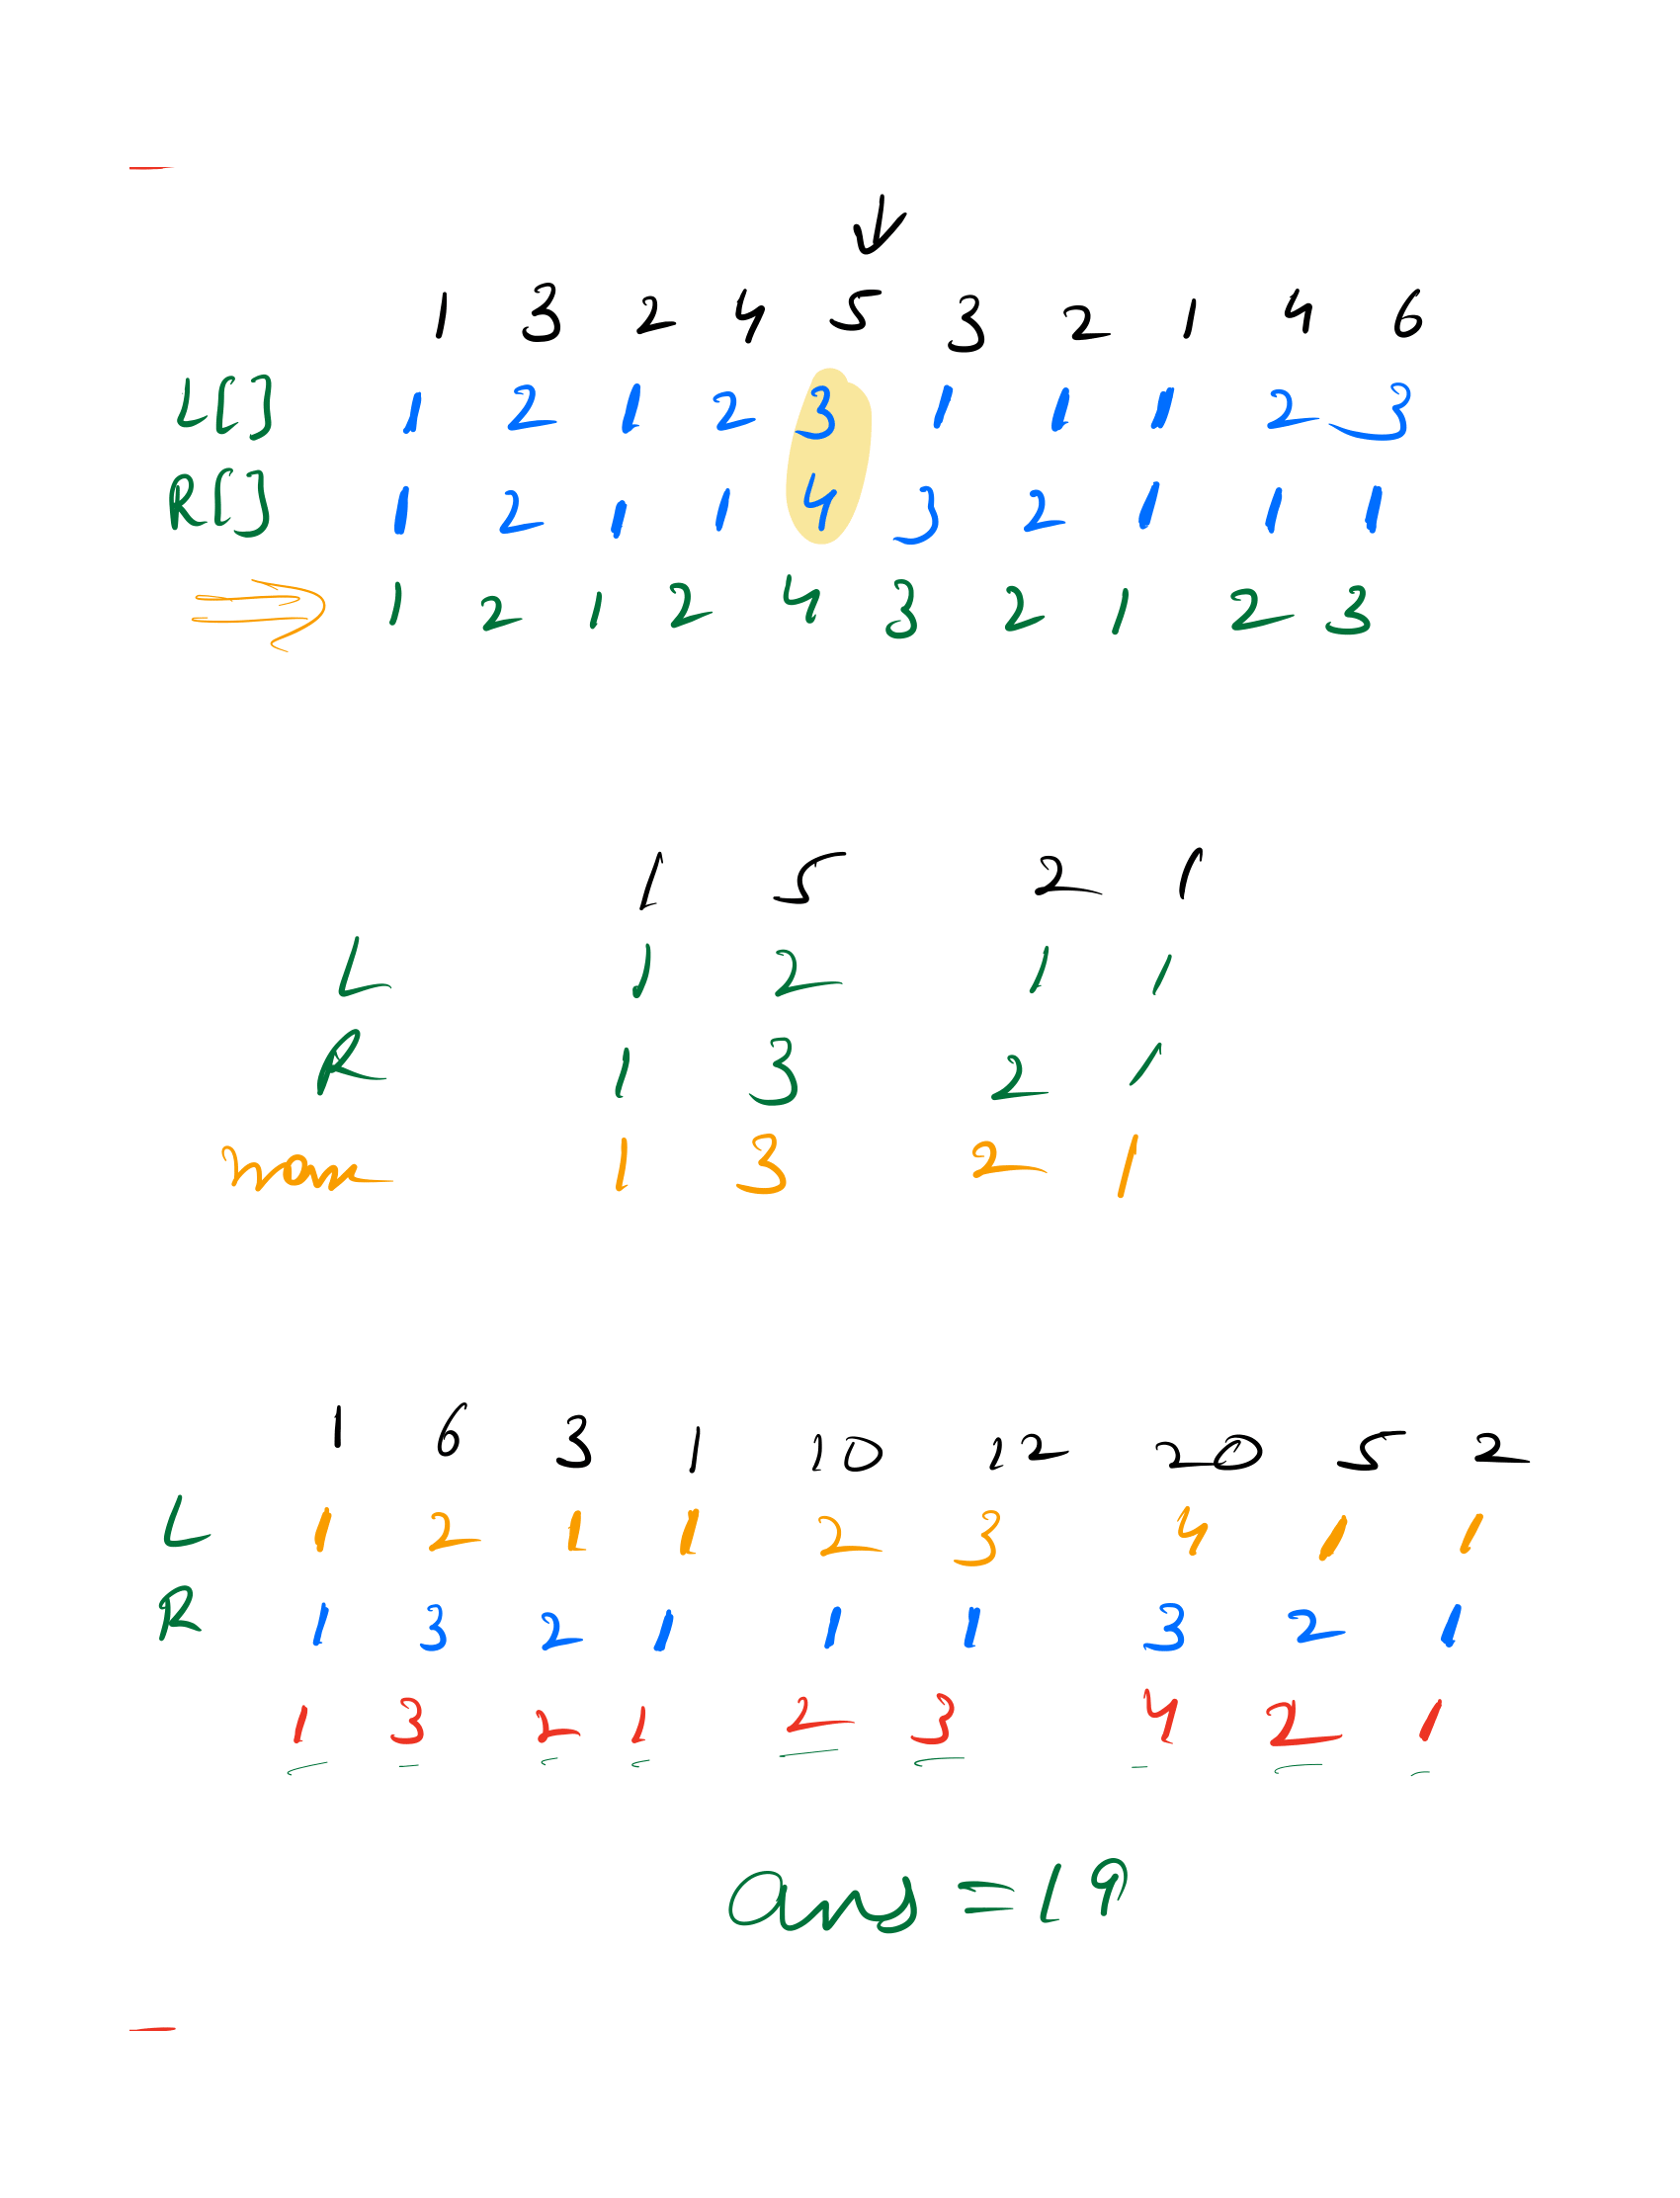 1 3 2 4 5 3 2 1 4 6
L[] 1 2 1 2 3 1 1 1 2 3
R[] 1 2 1 1 4 3 2 1 1 1
1 2 1 2 4 3 2 1 2 3
1 5 2 1
L 1 2 1 1
R 1 3 2 1
max 1 3 2 1
1 6 3 1 10 12 20 5 2
L 1 2 1 1 2 3 4 1 1
R 1 3 2 1 1 1 3 2 1
1 3 2 1 2 3 4 2 1
ans = 19